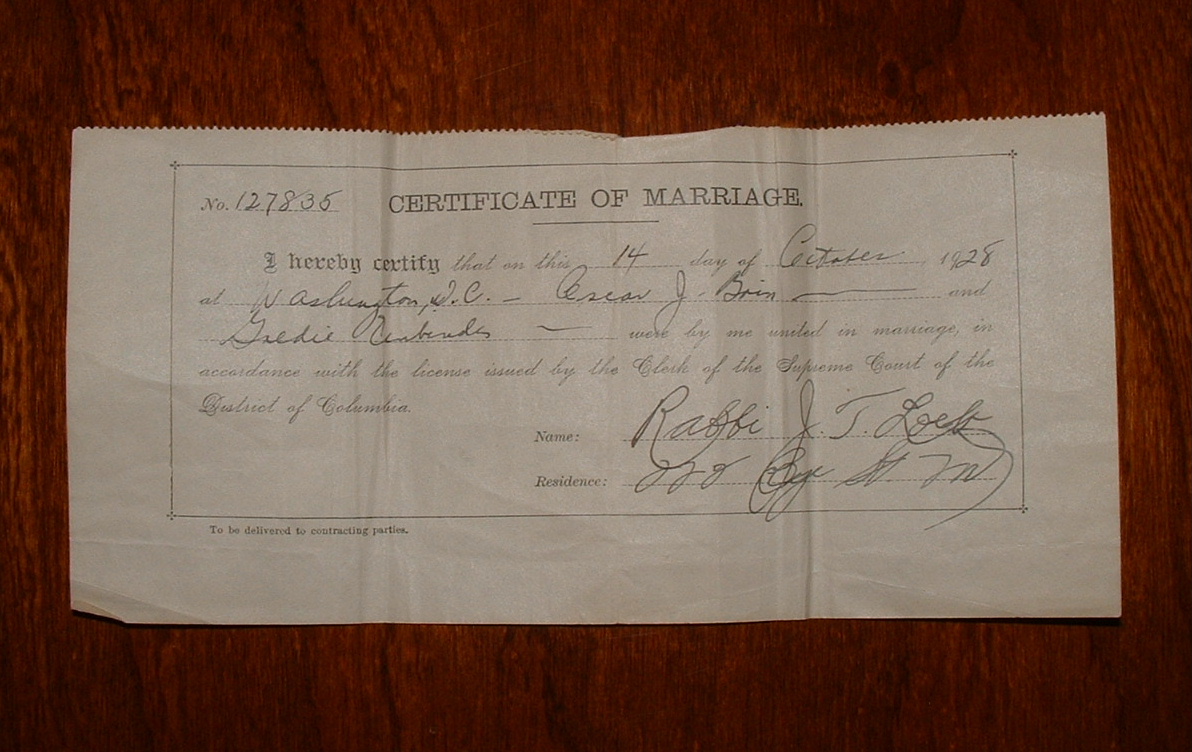 No. 127835 CERTIFICATE OF MARRIAGE.
I hereby certify that on this 14 day of October 1928
at Washington, D.C. – Oscar J. Boin — and
Goldie — were by me united in marriage, in
accordance with the license issued by the Clerk of the Supreme Court of the
District of Columbia.
Name: Rabbi J. T. Loeb
Residence: 222 Eye St. NW
To be delivered to contracting parties.